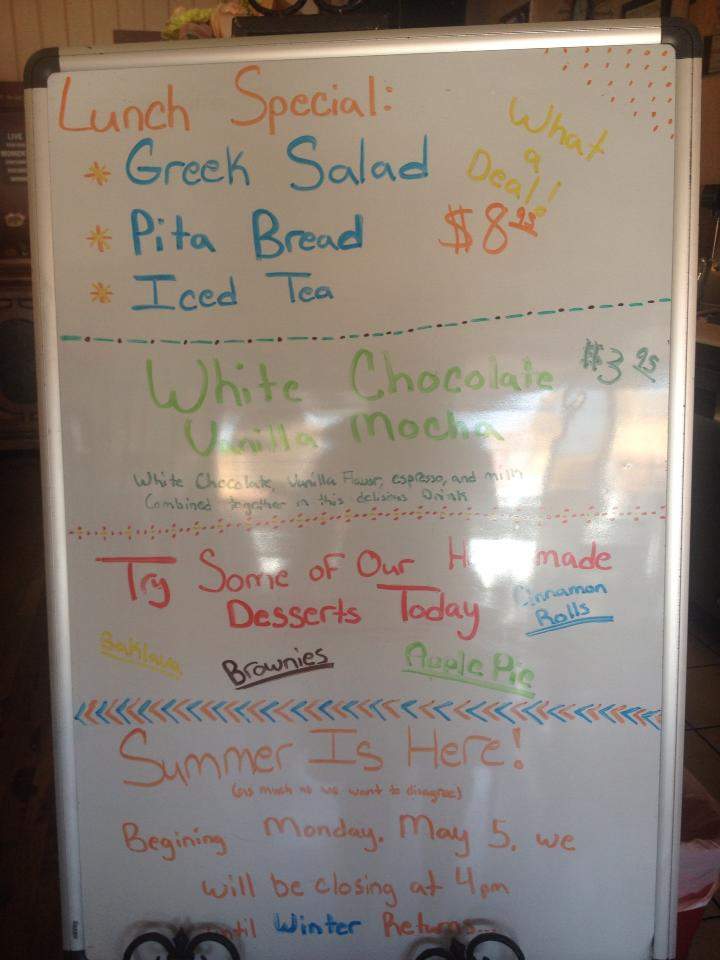 Lunch Special:
* Greek Salad
What
a
Deal!
* Pita Bread
$8.95
* Iced Tea
White Chocolate
$3.95
Vanilla Mocha
White Chocolate, Vanilla Flavor, espresso, and milk
Combined together in this delisious Drink
Try Some of Our H made
Desserts Today
Cinnamon
Rolls
Baklava
Brownies
Apple Pie
Summer Is Here!
(as much as we want to disagree)
Begining Monday, May 5, we
will be closing at 4pm
until Winter Returns...
LIVE